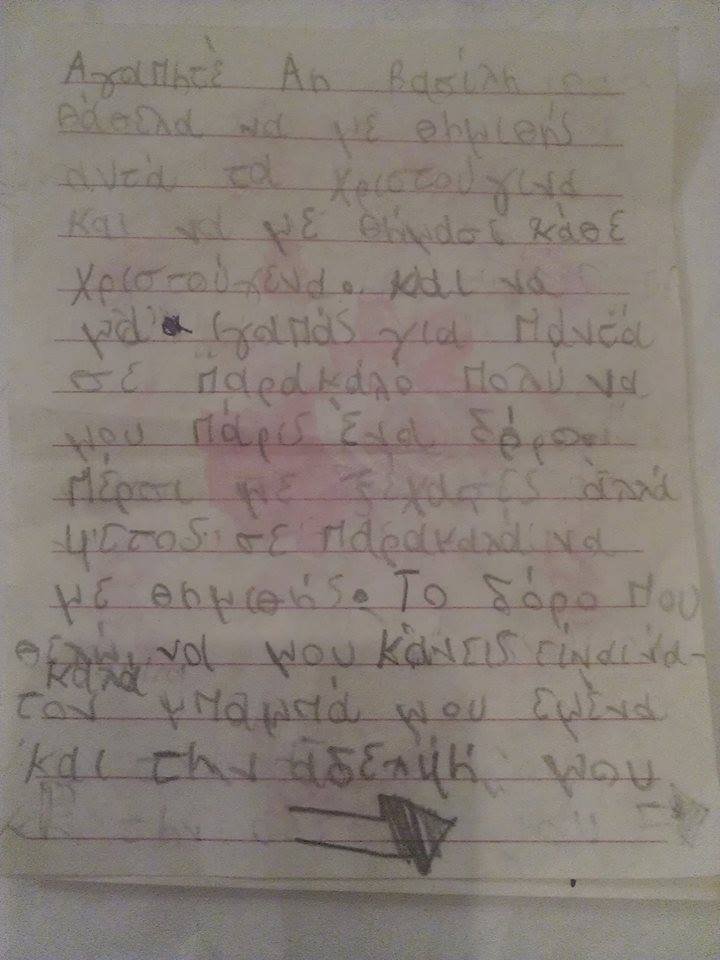 Αγαπητέ Αη Βασίλη
θάθελα να με θημιθής
αυτά τα χριστούγινα
και να με θήμασε κάθε
χριστούγενα. και να
μα αγαπάς για πάντα
σε παρακαλό πολύ να
μου πάρις ένα δόρο.
πέρσι με ξέχασες αλλά
φέτος σε παρακαλά να
με θημιθής. Το δόρο που
θέλω να μου κάνεις είναι να-
καλά
τον μπαμπά μου εμένα
και την αδελφή μου